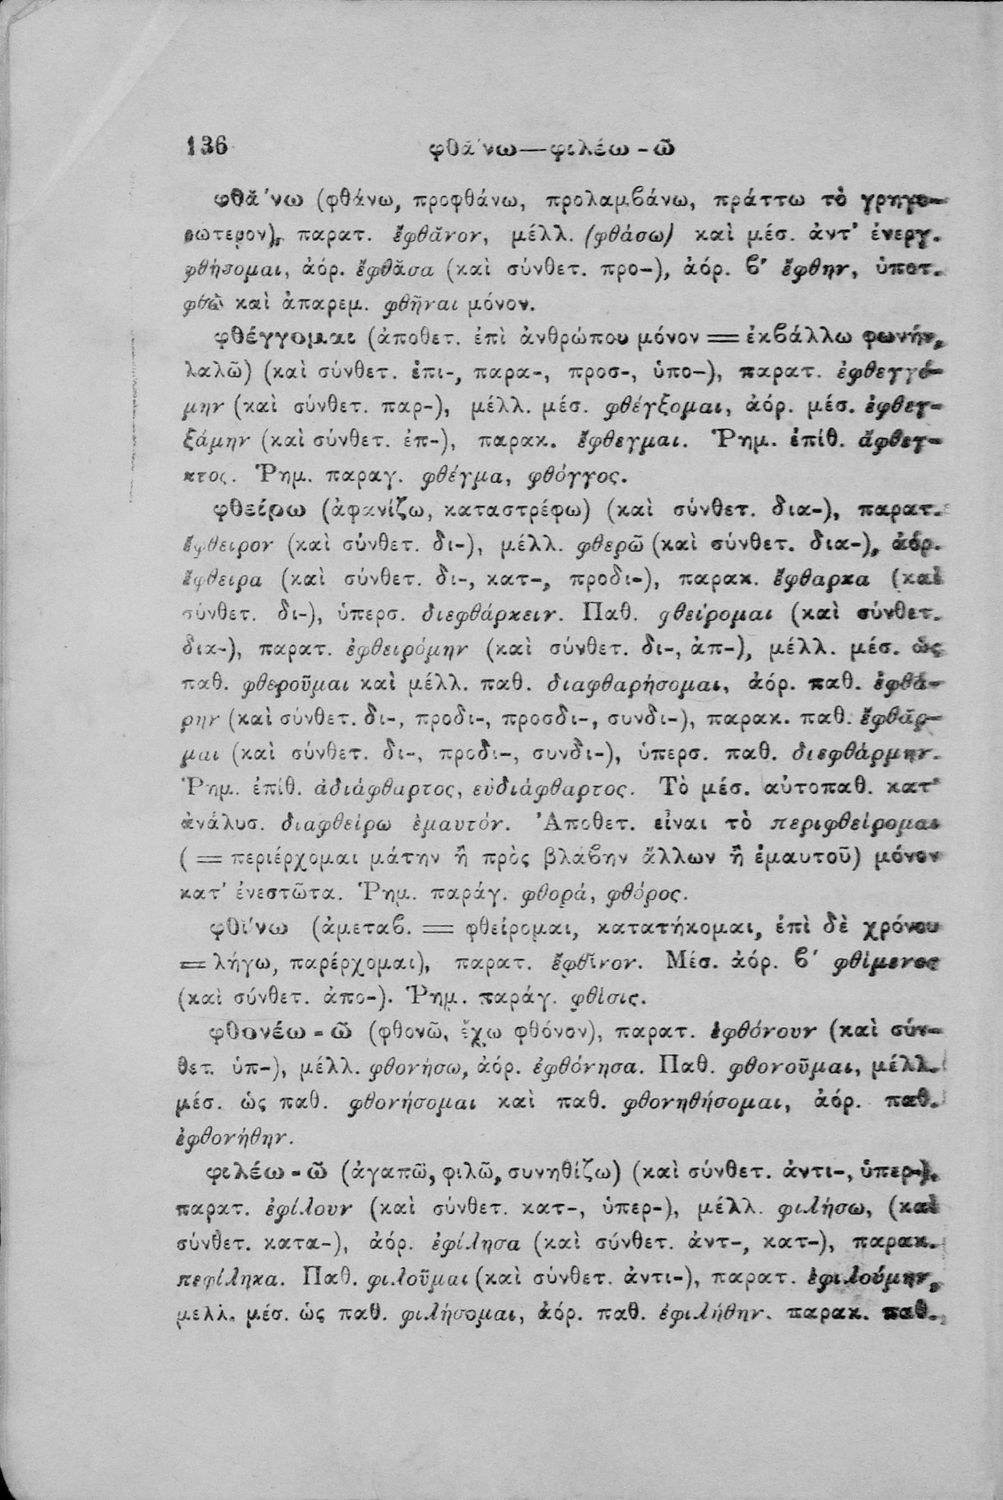 136 φθά΄νω—φιλέω-ῶ
φθά΄νω (φθάνω, προφθάνω, προλαμβάνω, πράττω τὸ γρηγο-
ρώτερον), παρατ. ἔφθᾰνον, μέλλ. (φθάσω) καὶ μέσ. ἀντ' ἐνεργ.
φθήσομαι, ἀόρ. ἔφθᾰσα (καὶ σύνθετ. προ-), ἀόρ. β' ἔφθην, ὑποτ.
φθῶ καὶ ἀπαρεμ. φθῆναι μόνον.
φθέγγομαι (ἀποθετ. ἐπὶ ἀνθρώπου μόνον = ἐκβάλλω φωνήν,
λαλῶ) (καὶ σύνθετ. ἐπι-, παρα-, προσ-, ὑπο-), παρατ. ἐφθεγγό-
μην (καὶ σύνθετ. παρ-), μέλλ. μέσ. φθέγξομαι, ἀόρ. μέσ. ἐφθεγ-
ξάμην (καὶ σύνθετ. ἐπ-), παρακ. ἔφθεγμαι. Ῥημ. ἐπίθ. ἄφθεγ-
κτος. Ῥημ. παραγ. φθέγμα, φθόγγος.
φθείρω (ἀφανίζω, καταστρέφω) (καὶ σύνθετ. δια-), παρατ.
ἔφθειρον (καὶ σύνθετ. δι-), μέλλ. φθερῶ (καὶ σύνθετ. δια-), ἀόρ.
ἔφθειρα (καὶ σύνθετ. δι-, κατ-, προδι-), παρακ. ἔφθαρκα (καὶ
σύνθετ. δι-), ὑπερσ. διεφθάρκειν. Παθ. φθείρομαι (καὶ σύνθετ.
δια-), παρατ. ἐφθειρόμην (καὶ σύνθετ. δι-, ἀπ-), μέλλ. μέσ. ὡς
παθ. φθεροῦμαι καὶ μέλλ. παθ. διαφθαρήσομαι, ἀόρ. παθ. ἐφθά-
ρην (καὶ σύνθετ. δι-, προδι-, προσδι-, συνδι-), παρακ. παθ. ἔφθαρ-
μαι (καὶ σύνθετ. δι-, προδι-, συνδι-), ὑπερσ. παθ. διεφθάρμην.
Ῥημ. ἐπίθ. ἀδιάφθαρτος, εὐδιάφθαρτος. Τὸ μέσ. αὐτοπαθ. κατ'
ἀνάλυσ. διαφθείρω ἐμαυτόν. Ἀποθετ. εἶναι τὸ περιφθείρομαι
( = περιέρχομαι μάτην ἢ πρὸς βλάβην ἄλλων ἢ ἐμαυτοῦ) μόνον
κατ' ἐνεστῶτα. Ῥημ. παράγ. φθορά, φθόρος.
φθί΄νω (ἀμεταβ. = φθείρομαι, κατατήκομαι, ἐπὶ δὲ χρόνου
= λήγω, παρέρχομαι), παρατ. ἔφθῑνον. Μέσ. ἀόρ. β' φθίμενος
(καὶ σύνθετ. ἀπο-). Ῥημ. παράγ. φθίσις.
φθονέω-ῶ (φθονῶ, ἔχω φθόνον), παρατ. ἐφθόνουν (καὶ σύν-
θετ. ὑπ-), μέλλ. φθονήσω, ἀόρ. ἐφθόνησα. Παθ. φθονοῦμαι, μέλλ.
μέσ. ὡς παθ. φθονήσομαι καὶ παθ. φθονηθήσομαι, ἀόρ. παθ.
ἐφθονήθην.
φιλέω-ῶ (ἀγαπῶ, φιλῶ, συνηθίζω) (καὶ σύνθετ. ἀντι-, ὑπερ-),
παρατ. ἐφίλουν (καὶ σύνθετ. κατ-, ὑπερ-), μέλλ. φιλήσω, (καὶ
σύνθετ. κατα-), ἀόρ. ἐφίλησα (καὶ σύνθετ. ἀντ-, κατ-), παρακ.
πεφίληκα. Παθ. φιλοῦμαι (καὶ σύνθετ. ἀντι-), παρατ. ἐφιλούμην,
μελλ. μέσ. ὡς παθ. φιλήσομαι, ἀόρ. παθ. ἐφιλήθην. παρακ. παθ.